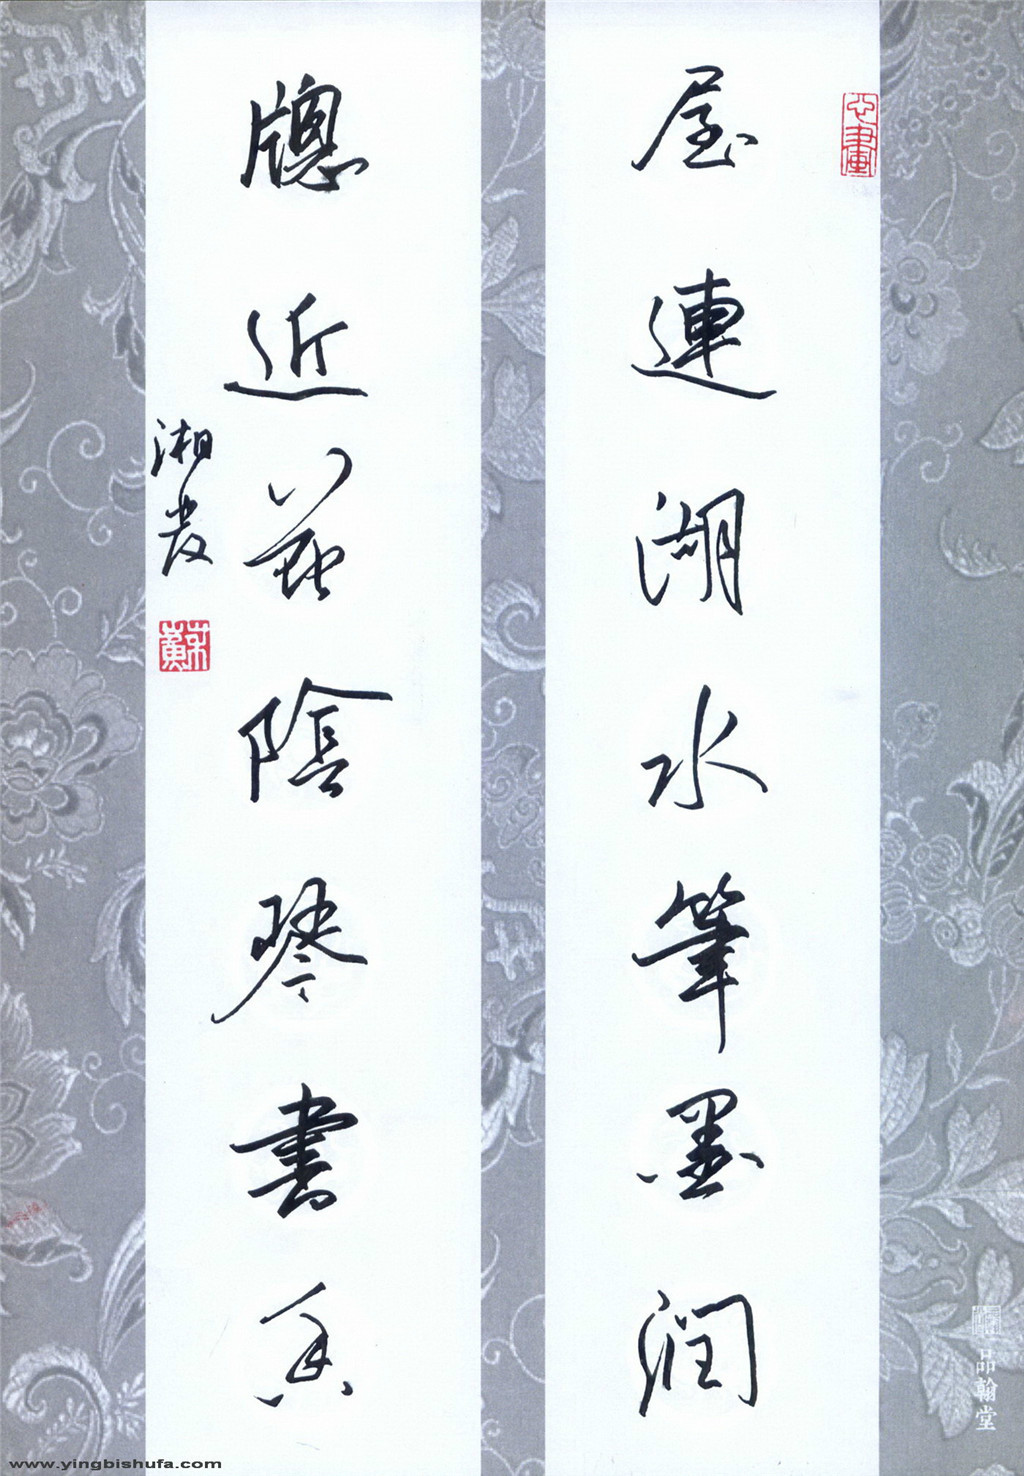 屋連湖水筆墨潤
牕近花陰琴書香
心畫
品翰堂
www.yingbishufa.com